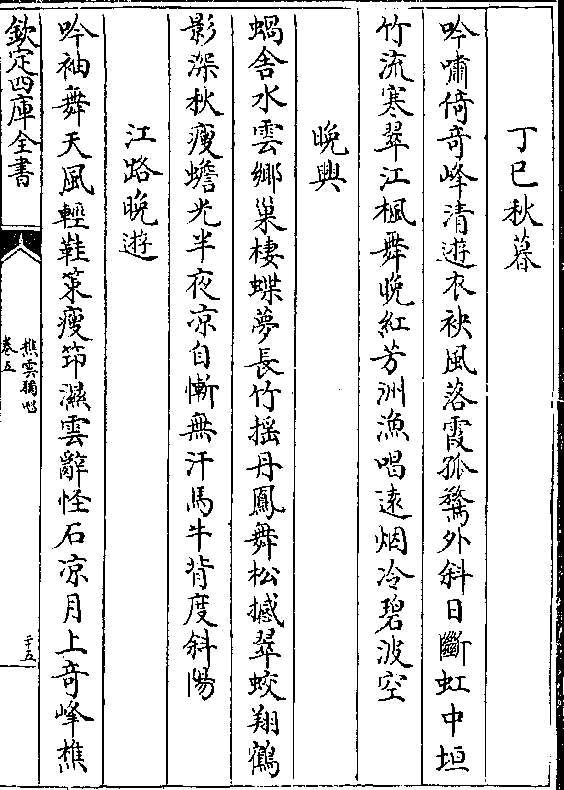 丁巳秋暮
吟嘯倚竒峰清遊衣袂風落霞孤鶩外斜日斷虹中垣
竹流寒翠江楓舞晚紅芳洲漁唱遠烟冷碧波空
晚興
蝸舎水雲鄉巢棲蝶夢長竹揺丹鳳舞松撼翠蛟翔鶴
影深秋瘦蟾光半夜凉自慚無汗馬牛背度斜陽
江路晚遊
吟袖舞天風輕鞋策瘦笻濕雲辭怪石凉月上竒峰樵
欽定四庫全書
樵雲獨唱
卷五
二十五